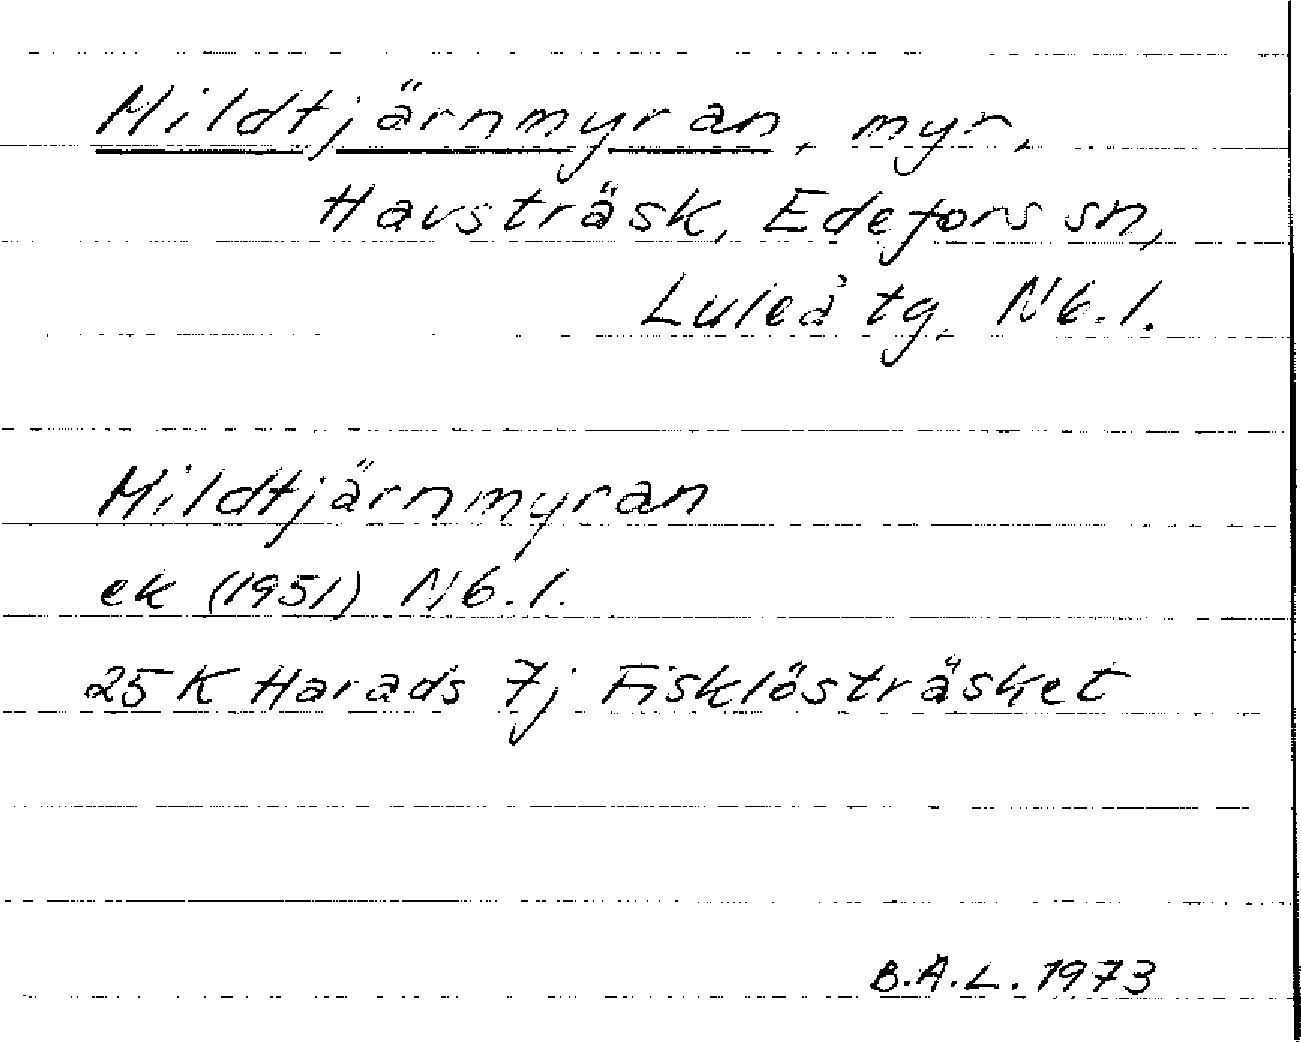 Mildtjärnmyran, myr,
Havsträsk, Edefors sn,
Luleå tg. N6.1.
Mildtjärnmyran
ek (1951) N6.1.
25 K Harads 7j Fisklösträsket
B.A.L. 1973